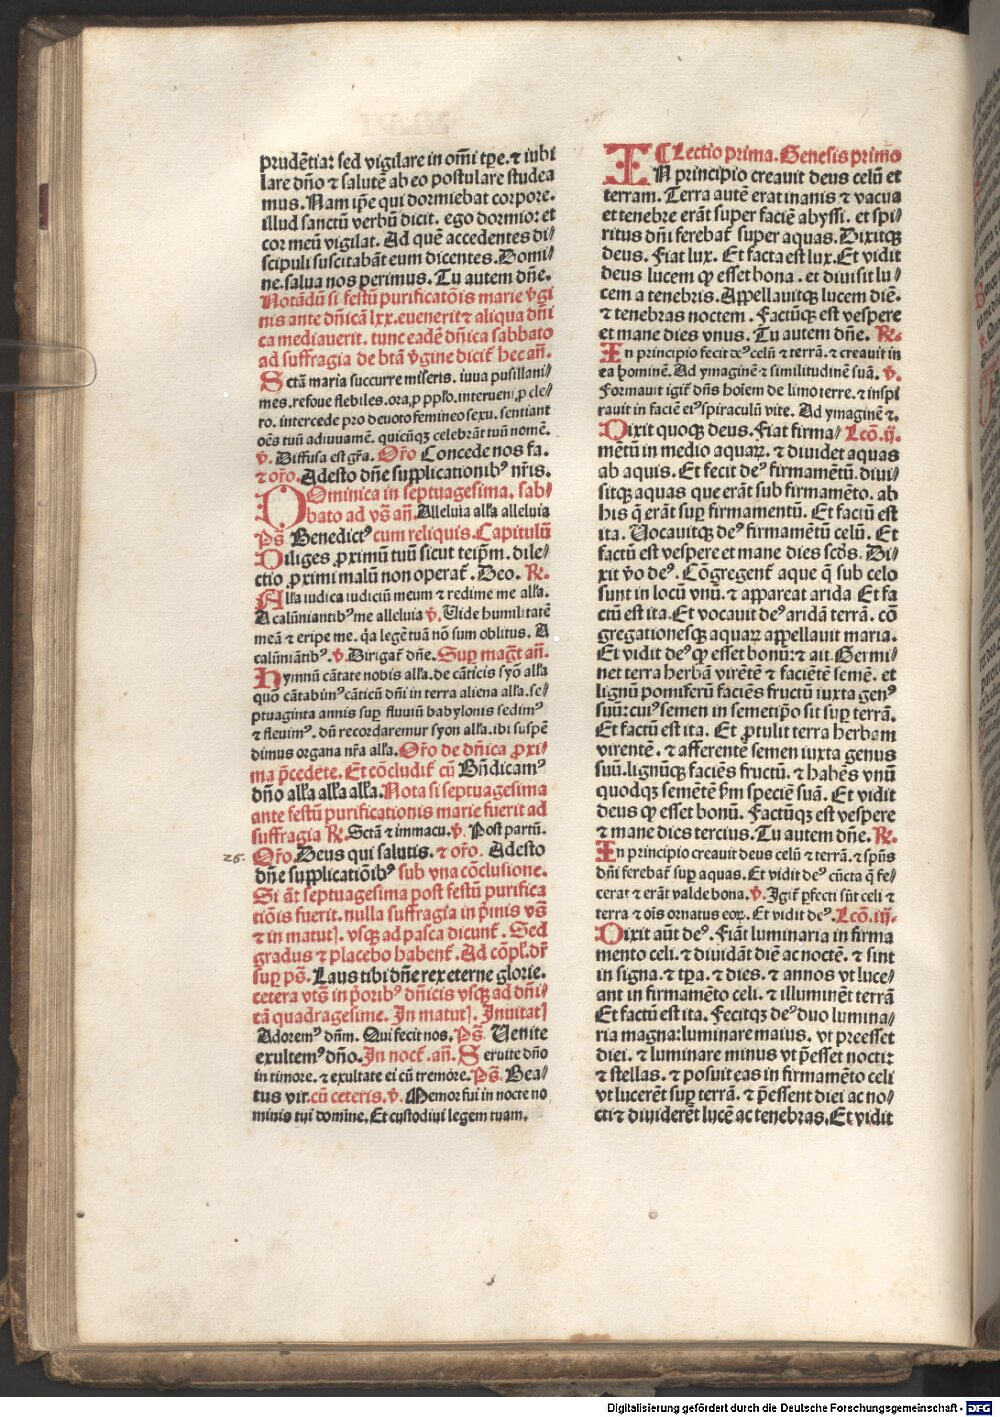 prudētia: sed vigilare in om̄i tp̄e. ⁊ iubi
lare dn̄o ⁊ salutē ab eo postulare studea
mus. Nam ip̄e qui dormiebat corpore.
illud sanctū verbū dicit. ego dormio: et
cor meū vigilat. Ad quē accedentes di⸗
scipuli suscitabāt eum dicentes. Domi⸗
ne. salua nos perimus. Tu autem dn̄e.
Notādū si festū purificatōis marie v̄gi
nis ante dn̄icā lxx. euenerit ⁊ aliqua dn̄i
ca mediauerit. tunc eadē dn̄ica sabbato
ad suffragia de btā v̄gine dicit̄ hec an̄.
Sctā maria succurre miseris. iuua pusillani⸗
mes. refoue flebiles. ora ꝓ ppl̄o. interueni ꝓ cle⸗
ro. intercede pro deuoto femineo sexu. sentiant
oēs tuū adiuuamē. quicūqꝫ celebrāt tuū nomē.
v̄. Diffusa est gr̄a. Or̄o Concede nos fa.
⁊ or̄o. Adesto dn̄e supplicationibꝰ nr̄is.
Dominica in septuagesima. sab⸗
bato ad vs̄ an̄. Alleluia all'a alleluia
ps̄ Benedictꝰ cum reliquis. Capitulū
Diliges ꝓximū tuū sicut teip̄m. dile⸗
ctio ꝓximi malū non operat̄. Deo. R̄.
All'a iudica iudiciū meum ⁊ redime me all'a.
A calūniantibꝰ me alleluia v̄. Uide humilitatē
meā ⁊ eripe me. q̄a legē tuā nō sum oblitus. A
calūniātibꝰ. v̄. Dirigat̄ dn̄e. Sup̱ maḡt an̄.
Hymnū cātate nobis all'a. de cāticis syō all'a
quō cātabimꝰ cāticū dn̄i in terra aliena all'a. se⸗
ptuaginta annis sup̱ fluuiū babylonis sedimꝰ
⁊ fleuimꝰ. dū recordaremur syon all'a. ibi suspē
dimus organa nr̄a all'a. Or̄o de dn̄ica ꝓxi⸗
ma p̄cedēte. Et cōcludit̄ cū Bn̄dicamꝰ
dn̄o all'a all'a all'a. Nota si septuagesima
ante festū purificationis marie fuerit ad
suffragia R̄. Sctā ⁊ immacu. v̄. Post partū.
26. Or̄o. Deus qui salutis. ⁊ or̄o. Adesto
dn̄e supplicatiōibꝰ sub vna cōclusione.
Si āt septuagesima post festū purifica
tiōis fuerit. nulla suffragia in p̄mis vs̄
⁊ in matut̄. vsqꝫ ad pasca dicunt̄. Sed
gradus ⁊ placebo habent̄. Ad cōpl̄. dr̄
sup̱ ps̄. Laus tibi dn̄e rex eterne glorie.
cetera vts̄ in p̄oribꝰ dn̄icis vsqꝫ ad dn̄i⸗
cā quadragesime. In matut̄. Inuitat̄
Adoremꝰ dn̄m. Qui fecit nos. Ps̄. Uenite
exultemꝰ dn̄o. In noct̄. an̄. Seruite dn̄o
in timore. ⁊ exultate ei cū tremore. Ps̄. Bea⸗
tus vir. cū ceteris. v̄. Memor fui in nocte no
minis tui domine. Et custodiui legem tuam.
¶ Lectio prima. Genesis primo
IN principio creauit deus celū et
terram. Terra autē erat inanis ⁊ vacua
et tenebre erāt super faciē abyssi. et spi⸗
ritus dn̄i ferebat̄ super aquas. Dixitqꝫ
deus. Fiat lux. Et facta est lux. Et vidit
deus lucem ꝙ esset bona. et diuisit lu⸗
cem a tenebris. Appellauitqꝫ lucem diē.
⁊ tenebras noctem. Factūqꝫ est vespere
et mane dies vnus. Tu autem dn̄e. R̄.
In principio fecit deꝰ celū ⁊ terrā. ⁊ creauit in
ea hominē. Ad ymaginē ⁊ similitudinē suā. v̄.
Formauit igit̄ dn̄s hoīem de limo terre. ⁊ inspi
rauit in faciē eiꝰ spiraculū vite. Ad ymaginē ⁊.
Dixit quoqꝫ deus. Fiat firma⸗ Lcō. ij.
mētū in medio aquaꝝ. ⁊ diuidet aquas
ab aquis. Et fecit deꝰ firmamētū. diui⸗
sitqꝫ aquas que erāt sub firmamēto. ab
his q̄ erāt sup̱ firmamentū. Et factū est
ita. Uocauitqꝫ deꝰ firmamētū celū. Et
factū est vespere et mane dies scd̄s. Di⸗
xit v̄o deꝰ. Cōgregent̄ aque q̄ sub celo
sunt in locū vnū. ⁊ appareat arida Et fa
ctū est ita. Et vocauit deꝰ aridā terrā. cō
gregationesqꝫ aquaꝝ appellauit maria.
Et vidit deꝰ ꝙ esset bonū: ⁊ ait. Germi⸗
net terra herbā virētē ⁊ faciētē semē. et
lignū pomiferū faciēs fructū iuxta genꝰ
suū: cuiꝰ semen in semetip̄o sit sup̱ terrā.
Et factū est ita. Et ꝓtulit terra herbam
virentē. ⁊ afferentē semen iuxta genus
suū. lignūqꝫ faciēs fructū. ⁊ habēs vnū
quodqꝫ semētē ẜm speciē suā. Et vidit
deus ꝙ esset bonū. Factūqꝫ est vespere
⁊ mane dies tercius. Tu autem dn̄e. R̄.
In principio creauit deus celū ⁊ terrā. ⁊ spūs
dn̄i ferebat̄ sup̱ aquas. Et vidit deꝰ cūcta q̄ fe⸗
cerat ⁊ erāt valde bona. v̄. Igit̄ ꝑfecti sūt celi ⁊
terra ⁊ oīs ornatus eoꝝ. Et vidit deꝰ. Lcō. iij.
Dixit aūt deꝰ. Fiāt luminaria in firma
mento celi. ⁊ diuidāt diē ac noctē. ⁊ sint
in signa. ⁊ tp̄a. ⁊ dies. ⁊ annos vt luce⸗
ant in firmamēto celi. ⁊ illuminēt terrā
Et factū est ita. Fecitqꝫ deꝰ duo lumina⸗
ria magna: luminare maius. vt preesset
diei. ⁊ luminare minus vt p̄esset nocti:
⁊ stellas. ⁊ posuit eas in firmamēto celi
vt lucerēt sup̱ terrā. ⁊ p̄essent diei ac no⸗
cti: ⁊ diuiderēt lucē ac tenebras. Et vidit
Digitalisierung gefördert durch die Deutsche Forschungsgemeinschaft - DFG